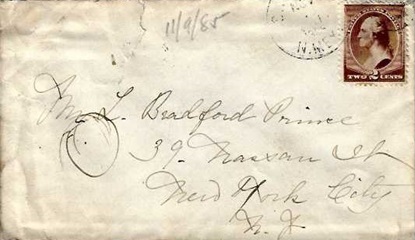 11/9/85
N.M.
TWO 2 CENTS
Mr L. Bradford Prince
39 Nassau St
New York City
N.Y